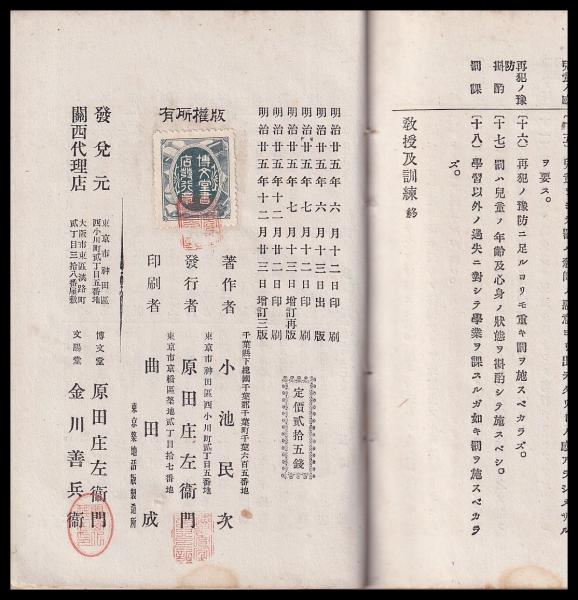 防
再犯ノ豫
(十六) 再犯ノ豫防ニ足ルヨリモ重キ罰ヲ施スベカラズ。
ヲ要ス。
斟酌
(十七) 罰ハ兒童ノ年齡及心身ノ狀態ヲ斟酌シテ施スベシ。
罰課
(十八) 學習以外ノ過失ニ對シテ學業ヲ課スルガ如キ罰ヲ施スベカラ
ズ。
敎授及訓練 終
明治廿五年六月十二日印刷
明治廿五年六月十三日出版
明治廿五年七月十二日印刷
明治廿五年七月十三日增訂再版
明治廿五年十二月廿二日印刷
明治廿五年十二月廿三日增訂三版
定價貳拾五錢
有所權版
博文堂書
店發行章
千葉縣下總國千葉郡千葉町千葉六百五番地
著作者 小池民次
東京市神田區西小川町貳丁目五番地
發行者 原田庄左衞門
東京市京橋區築地貳丁目拾七番地
印刷者 曲田成
東京築地活版製造所
發兌元
東京市神田區
西小川町貳丁目五番地
博文堂 原田庄左衞門
關西代理店
大阪市東區淡路町
貳丁目三拾八番屋敷
文賜堂 金川善兵衞